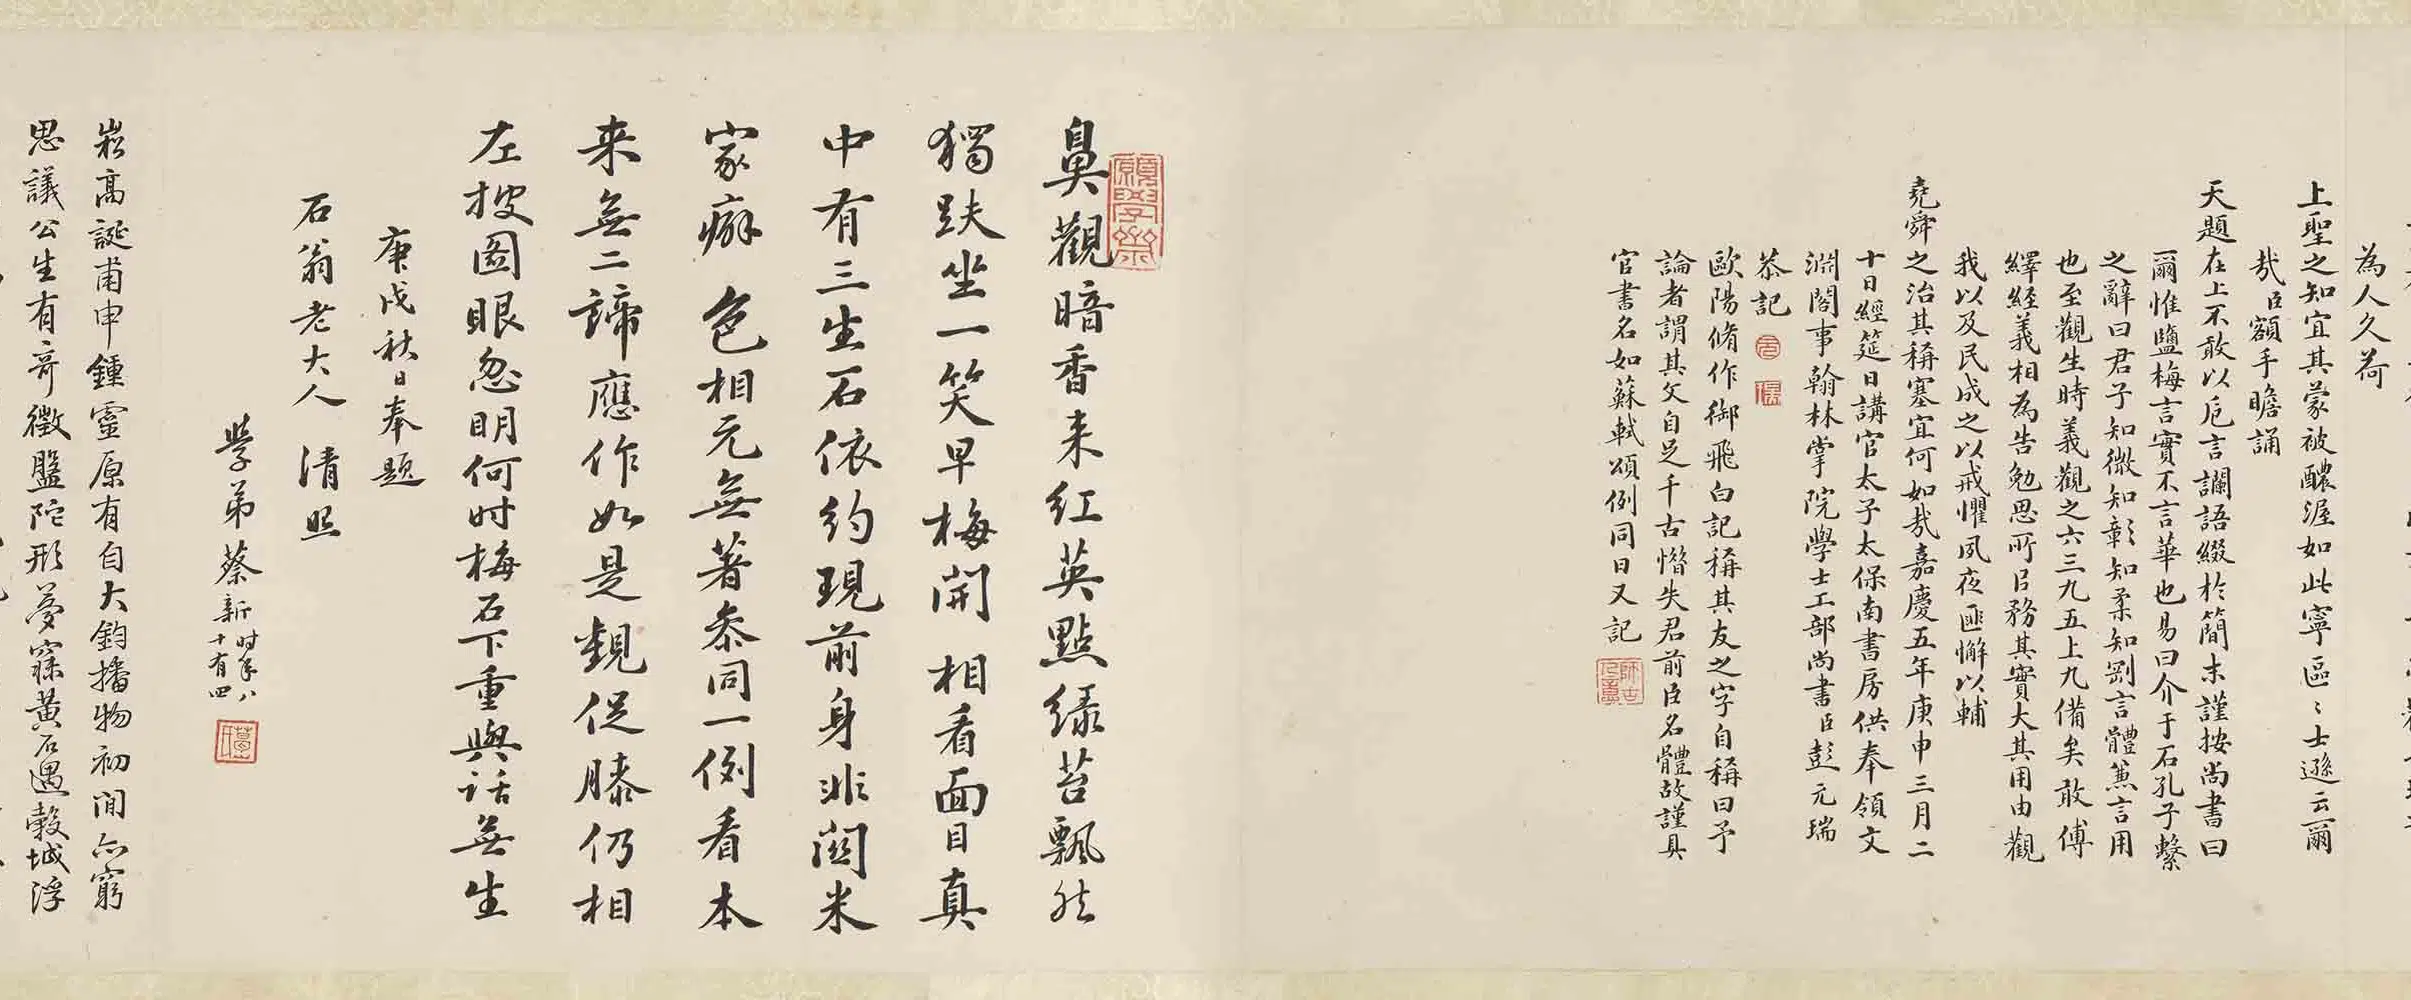 為人久荷
上聖之知宜其蒙被醲渥如此寧區〻士遜云爾
哉臣額手瞻誦
天題在上不敢以卮言讕語綴於簡末謹按尚書曰
爾惟鹽梅言實不言華也易曰介于石孔子繫
之辭曰君子知微知彰知柔知剛言體兼言用
也至觀生時義觀之六三九五上九備矣敢傅
繹經義相為告勉思所㠯務其實大其用由觀
我以及民成之以戒懼夙夜匪懈以輔
堯舜之治其稱塞宜何如哉嘉慶五年庚申三月二
十日經筵日講官太子太保南書房供奉領文
淵閣事翰林掌院學士工部尚書臣彭元瑞
恭記
歐陽脩作御飛白記稱其友之字自稱曰予
論者謂其文自足千古惜失君前臣名體故謹具
官書名如蘇軾頌例同日又記
鼻觀暗香来红英點緑苔飄然
獨趺坐一笑早梅開 相看面目真
中有三生石依約現前身非関米
家癖 色相元無著叅同一例看本
来無二諦應作如是觀促膝仍相
左披圖眼忽明何时梅石下重與话無生
庚戌秋日奉题
石翁老大人 清照
學弟蔡新时年八十有四
崧高誕甫申鍾靈原有自大鈞播物初間氣窮
思議公生有奇徵盤陀形夢寐黄石遇穀城浮